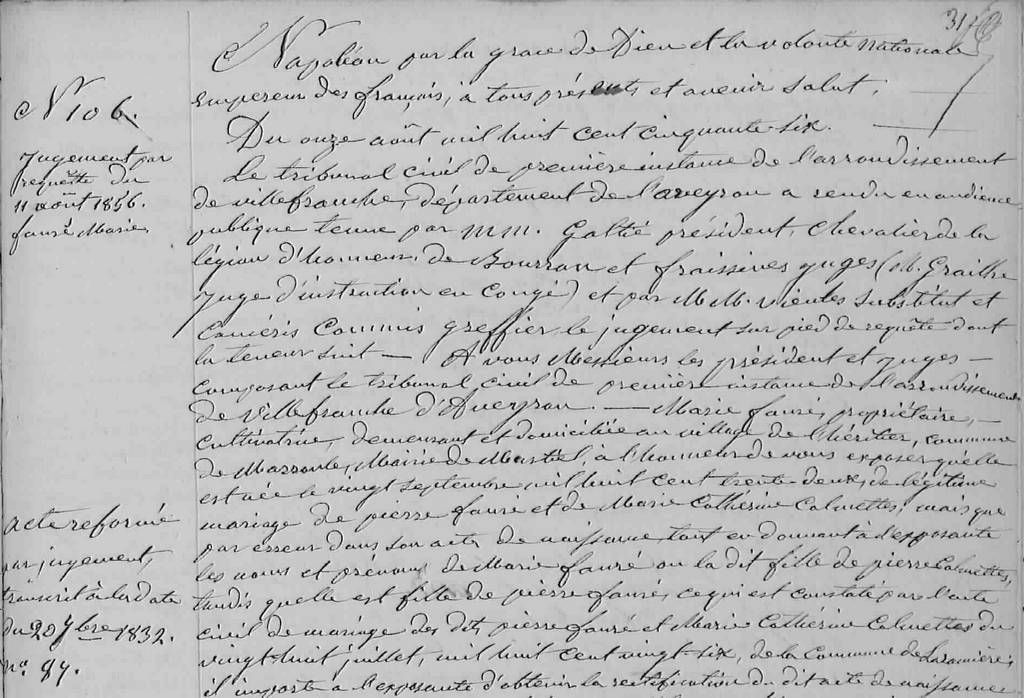 314
Napoléon par la grace de Dieu et la volonté nationale
Empereur des français, à tous présents et avenir salut.
N° 106.
Du onze août mil huit cent cinquante six.
Jugement par
requête du
11 août 1856.
fauré Marie
Le tribunal civil de première instance de l'arrondissement
de villefranche, département de l'aveyron a rendu en audience
publique tenue par M.M. Galtié président, Chevalier de la
légion d'honneur, de Bourran et fraissines juges (M. Grailhe
juge d'instruction en Congé) et par M.M. vientes Substitut et
Caméris Commis greffier, le jugement sur pied de requête dont
la teneur suit — A vous Messieurs les président et juges —
composant le tribunal civil de première instance de l'arrondissement
de Villefranche d'Aveyron. — Marie fauré, propriétaire, —
cultivatrice, demeurant et domiciliée au village de l'héritier, commune
de Mairie de Martiel à l'honneur de vous exposer qu'elle
est née le vingt septembre mil huit cent trente deux, de légitime
mariage de pierre fauré et de Marie Cathérine Calmettes; mais que
par erreur dans son acte de naissance, tout en donnant à l'exposante
les noms et prénoms de Marie fauré on la dit fille de pierre Calmettes,
tandis quelle est fille de pierre fauré, ce qui est constaté par l'acte
civil de mariage des dits pierre fauré et Marie Cathérine Calmettes du
vingt huit juillet, mil huit cent vingt six, de la Commune de Laramière;
il importe à l'exposante d'obtenir la rectification du dit acte de naissance
acte reformé
par jugement,
transcrit à la date
du 20 7bre 1832.
n° 87.